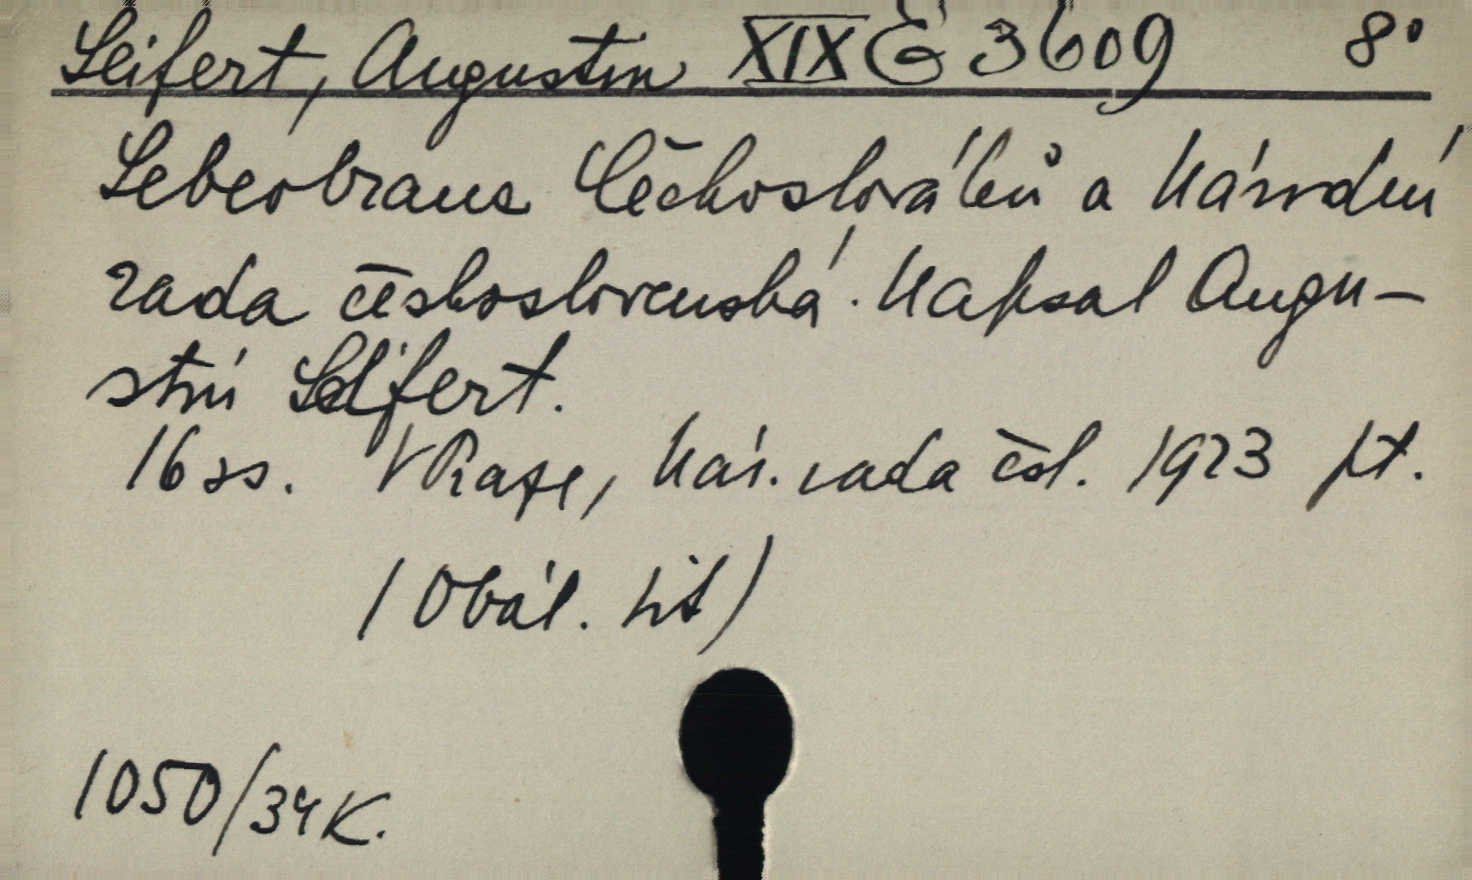 Seifert, Augustin XIX E 3609 8°
Sebeobrana Čechoslováků a Národní
rada československá. Napsal Augu-
stin Seifert.
16 ss. V Praze, Nár. rada čsl. 1923 pt.
(Obál. tit)
1050/34 K.